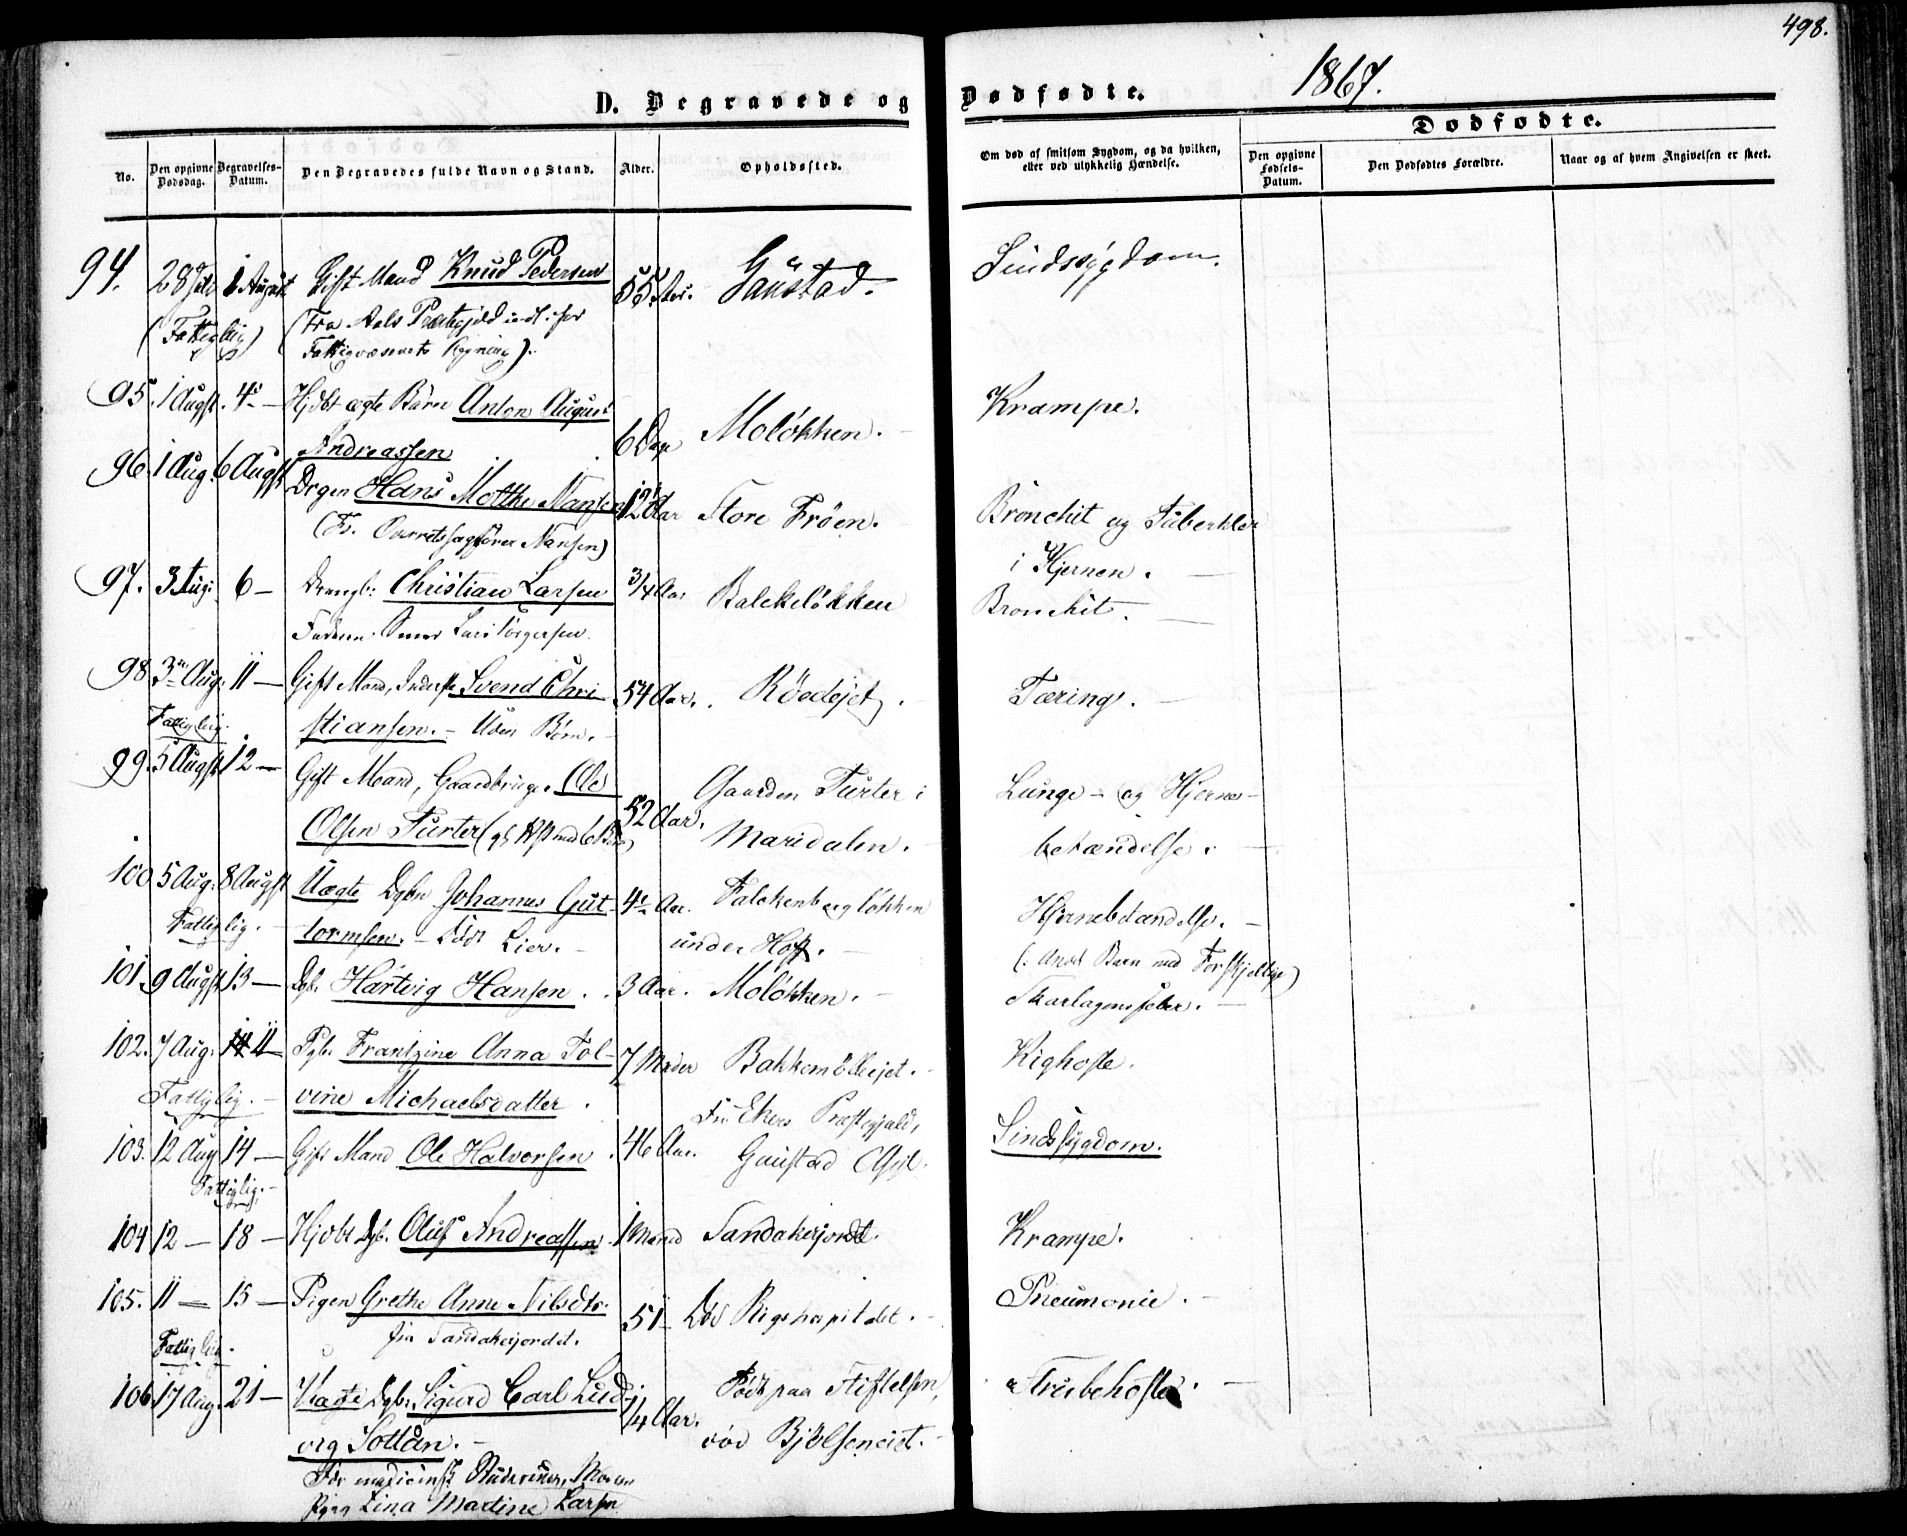 498.
1867.
D. Begravede og Dødfødte.
Dødfødte.
No.
Den opgivne Dødsdag.
Begravelses-Datum.
Den Begravedes fulde Navn og Stand.
Alder.
Opholdssted.
Om død af smitsom Sygdom, og da hvilken,
eller ved ulykkelig Hændelse.
Den opgivne Fødsels-Datum.
Den Dødfødtes Forældre.
Naar og af hvem Angivelsen er skeet.
94. 28 Juli 1 August Gift Mand Knud Pedersen 55 Aar. Gaustad. Sindssygdom.
(Fattiglig) (Fra Aals Præstegjeld indl. for
Fattigvæsenets Regning).
95. 1 Augst. 4 — Hjdbt ægte Barn Anton August
Andreassen 6 Dage Moløkken. Krampe.
96. 1 Aug. 6 Augst Drgen Hans Moltke Nansen 12 Aar Store Frøen. Bronchit og Tuberkler
(F. Overretssagfører Nansen) i Hjernen.
97. 3 Aug. 6 — Drengb: Christian Larsen 3/4 Aar Balckeløkken Bronchit.
Faderen Lars Törgersen.
98. 3 Aug. 11 — Gift Mand, Inderst Svend Chri
stiansen. – Uden Börn. 54 Aar. Röedejet. Tæring.
Fattiglig.
99. 5 Augst 12 — Gift Mand, Gaardbruger Ole
Olsen Turter 52 Aar. Gaarden Turter i
Maridalen. Lunge- og Hjerne-
betændelse.
100 5 Aug. 8 Augst Uægte Dgbn Johannes Gut-
tormsen. – Födt Lier. – 4 Aar. Falckenbergløkken
under Hoff. Hjernebetændelse.
Fattiglig. (: Andet Barn med Forskjellige)
101. 9 Augst 13 — Dgb. Hartvig Hansen. 3 Aar. Moløkken. Skarlagensfeber.
102. 7 Aug. 11 — Pgb. Frantzine Anna Tol-
vine Michaelsdatter. 7 Mader Bakkemöllejet. Kighoste.
Fattiglig. –
103. 12 Aug 14 — Gift Mand Ole Halvorsen. 46 Aar. Fra Ekers Præstegjæld,
Gaustad Asyl. Sindssygdom.
Fattiglig. –
104 12 — 18 — Hjdbt Dgb. Oluf Andreassen. 1 Maaned Sandakerjordet. Krampe.
105. 11 — 15 — Pigen Grethe Anne Nilsdtr.
fra Sandakerjordet. 51 Död Rigshospitalet. Pneumonie.
Fattiglig.
106 17 Aug. 21 — Uægte Dgb. Sigurd Carl Lud-
vig Sottan. – 1/4 Aar. Födt paa Stiftelsen,
död Bjölseneiet. Strubehoste.
Far medicinsk Studerende, Moren
Pige Lina Martine Larsen